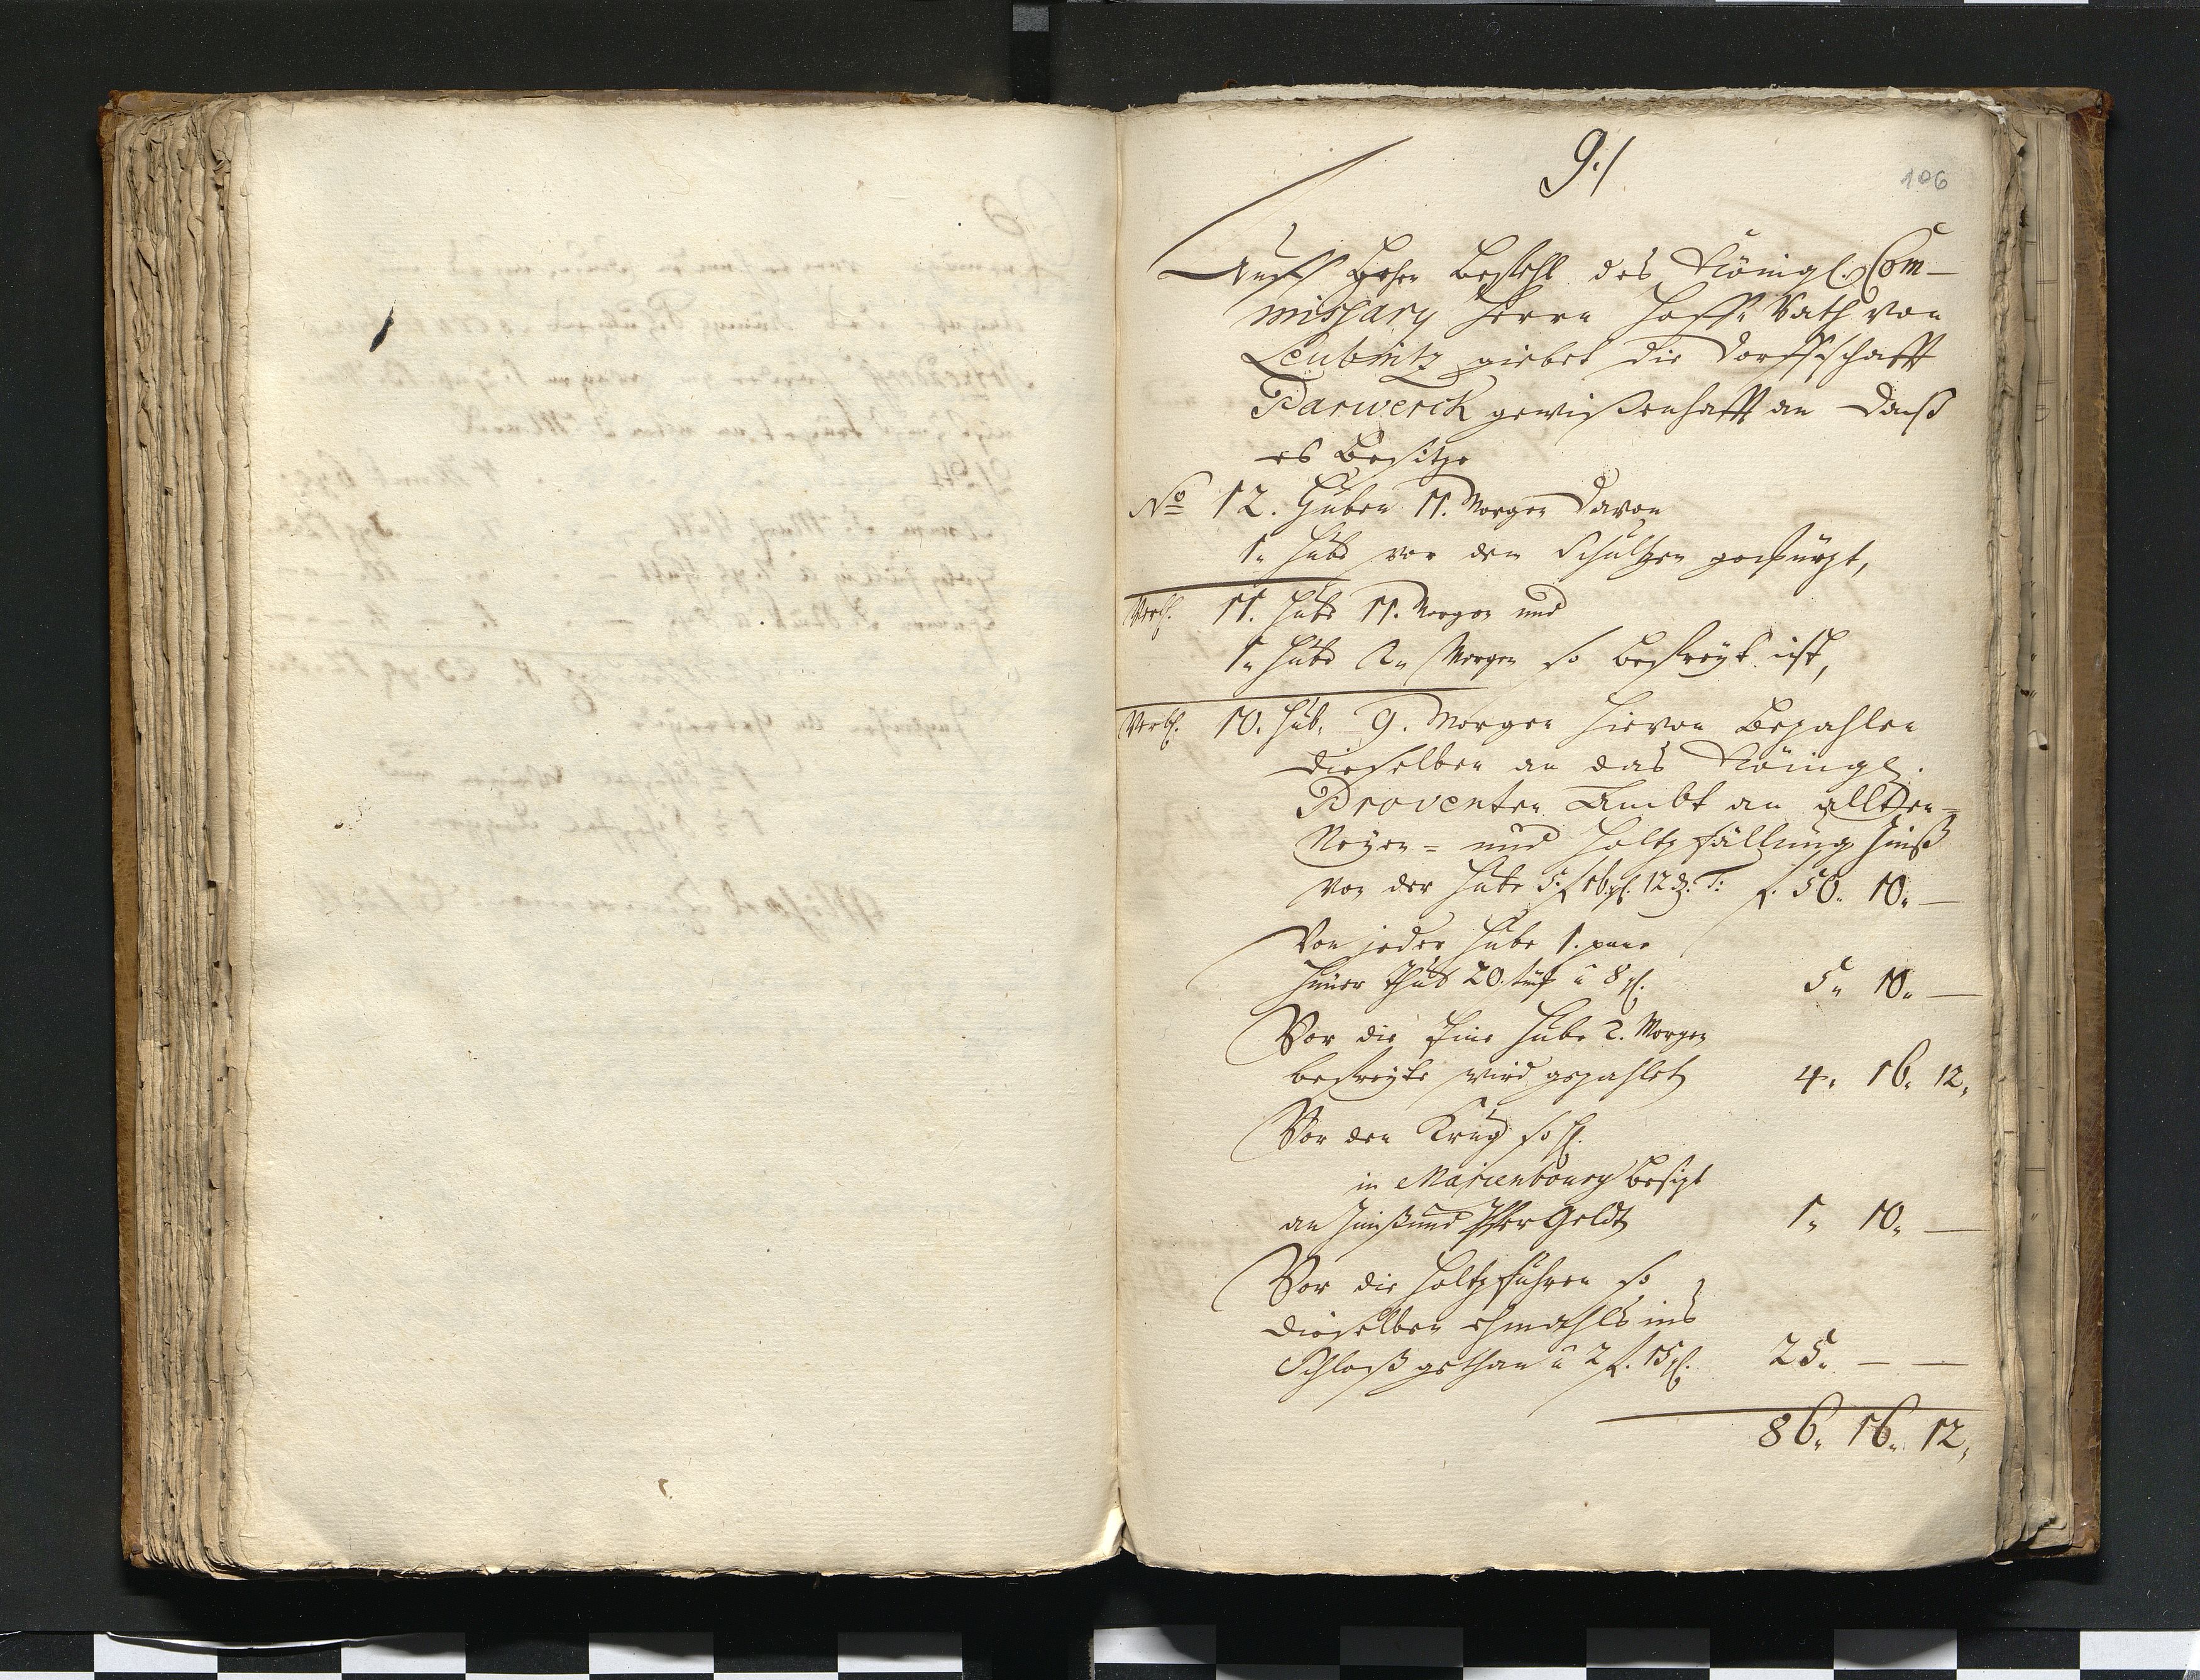 9./
106
Auff Hohen Befehl des Königl. Com-
missary Herrn Hoff-Rath von
Leubnitz giebet die Dorffschafft
Parwerck gewißenhafft an daß
es Besitze
No 12. Huben 11. Morgen davon
1„ Hube vor dem Schultzen
Verbl. 11. Hube 11. Morgen und
1„ Hube 2„ Morgen so befreyt ist,
Verbl. 10. Hub. 9. Morgen hievon Bezahlen
dieselben an das Königl.
Proventen Ambt an allten=
Neyen= und Holtzfällung Zinß
von der Hube f. 50. 10. —
Von jeder Hube 1. paar
Hüner thut 20. stük a 8 gl. 5„ 10„ —
Vor die Eine Hube 2. Morgen
befreyte wird gezahlet 4. 16. 12.
Vor den Krug so H.
in Marienbourg besizt
an Zinß und Geldt 1„ 10„ —
Vor die Holtzfuhren so
dieselben ehmahls ins
Schloß gethan a 2 f. 15 gl. 25„ — —
86„ 16„ 12„